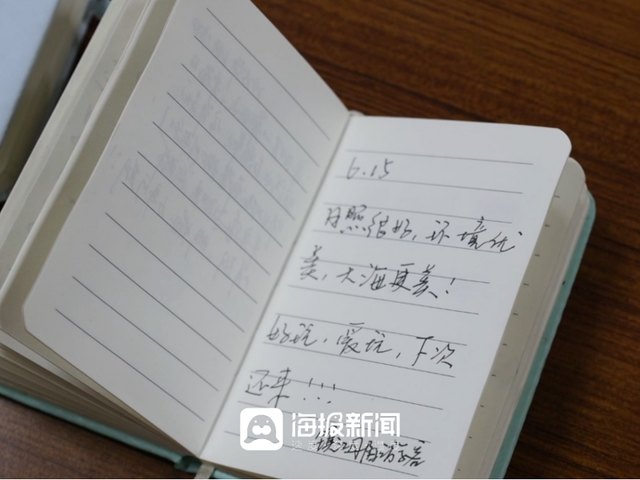 6.15
日照很好，环境优
美，大海更美！
好玩，爱玩，下次
还来！！！
海报新闻